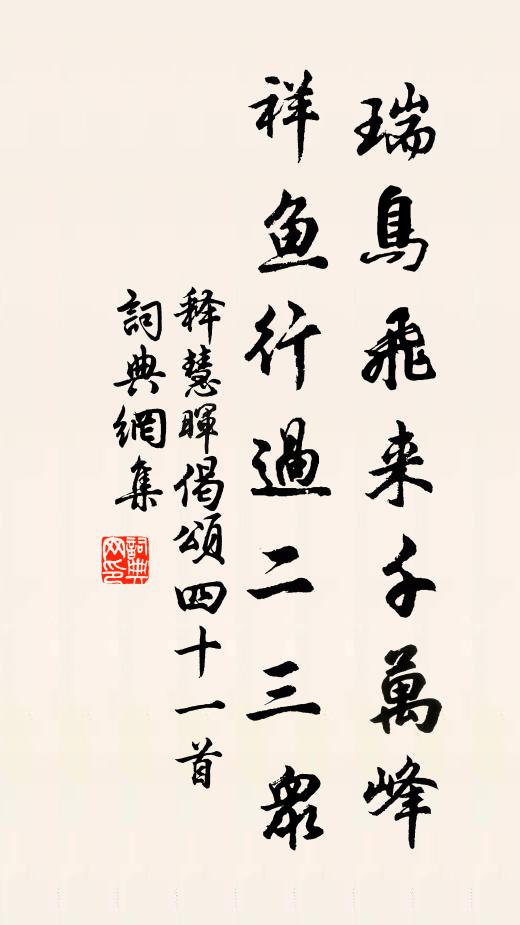 瑞鳥飛来千萬峰
祥鱼行過二三眾
释慧暉偈頌四十一首
詞典網集
詞典網印